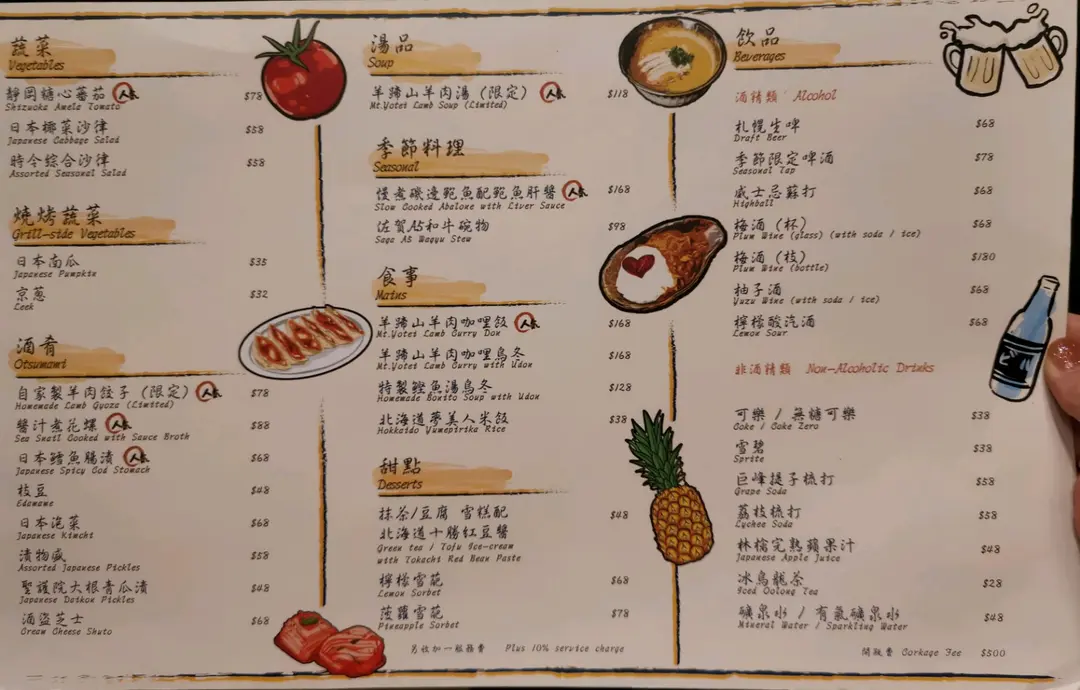 蔬菜
Vegetables
靜岡糖心蕃茄 人氣 $78
Shizuoka Amela Tomato
日本椰菜沙律 $58
Japanese Cabbage Salad
時令綜合沙律 $58
Assorted Seasonal Salad
燒烤蔬菜
Grill-side Vegetables
日本南瓜 $35
Japanese Pumpkin
京蔥 $32
Leek
酒肴
Otsumami
自家製羊肉餃子（限定） 人氣 $78
Homemade Lamb Gyoza (Limited)
醬汁煮花螺 人氣 $88
Sea Snail Cooked with Sauce Broth
日本鱈魚腸漬 人氣 $68
Japanese Spicy Cod Stomach
枝豆 $48
Edamame
日本泡菜 $68
Japanese Kimchi
漬物盛 $58
Assorted Japanese Pickles
聖護院大根青瓜漬 $48
Japanese Daikon Pickles
酒盜芝士 $68
Cream Cheese Shuto
湯品
Soup
羊蹄山羊肉湯（限定） 人氣 $118
Mt.Yotei Lamb Soup (Limited)
季節料理
Seasonal
慢煮磯邊鮑魚配鮑魚肝醬 人氣 $168
Slow Cooked Abalone with Liver Sauce
佐賀A5和牛碗物 $98
Saga A5 Wagyu Stew
食事
Mains
羊蹄山羊肉咖哩飯 人氣 $168
Mt.Yotei Lamb Curry Don
羊蹄山羊肉咖哩烏冬 $168
Mt.Yotei Lamb Curry with Udon
特製鰹魚湯烏冬 $128
Homemade Bonito Soup with Udon
北海道夢美人米飯 $38
Hokkaido Yumepirika Rice
甜點
Desserts
抹茶/豆腐 雪糕配 $48
北海道十勝紅豆醬
Green tea / Tofu Ice-cream
with Tokachi Red Bean Paste
檸檬雪葩 $68
Lemon Sorbet
菠蘿雪葩 $78
Pineapple Sorbet
另收加一服務費 Plus 10% service charge
飲品
Beverages
酒精類 Alcohol
札幌生啤 $68
Draft Beer
季節限定啤酒 $78
Seasonal Tap
威士忌蘇打 $68
Highball
梅酒（杯） $68
Plum Wine (glass) (with soda / ice)
梅酒（枝） $180
Plum Wine (bottle)
柚子酒 $68
Yuzu Wine (with soda / ice)
檸檬酸汽酒 $68
Lemon Sour
非酒精類 Non-Alcoholic Drinks
可樂 / 無糖可樂 $38
Coke / Coke Zero
雪碧 $38
Sprite
巨峰提子梳打 $58
Grape Soda
荔枝梳打 $58
Lychee Soda
林檎完熟蘋果汁 $48
Japanese Apple Juice
冰烏龍茶 $28
Iced Oolong Tea
礦泉水 / 有氣礦泉水 $48
Mineral Water / Sparkling Water
開瓶費 Corkage Fee $500
ビール